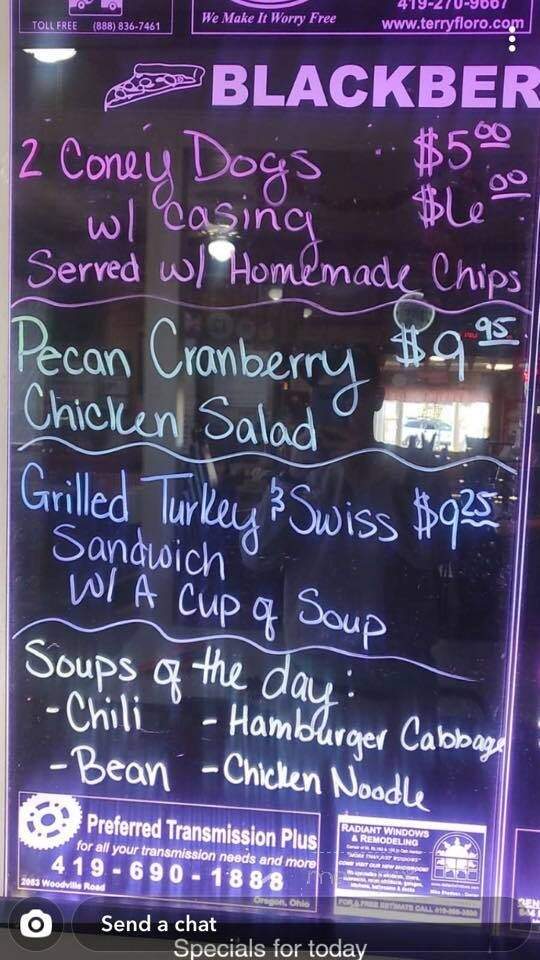 TOLL FREE (888) 836-7461
We Make It Worry Free
419-270-9667
www.terryfloro.com
BLACKBER
2 Coney Dogs $5.00
w/ casing $6.00
Served w/ Homemade Chips
Pecan Cranberry $9.95
Chicken Salad
Grilled Turkey & Swiss $9.25
Sandwich
W/ A Cup of Soup
Soups of the day:
- Chili - Hamburger Cabbage
- Bean - Chicken Noodle
Preferred Transmission Plus
for all your transmission needs and more
419-690-1888
2083 Woodville Road
Oregon, Ohio
RADIANT WINDOWS
& REMODELING
COME VISIT OUR NEW SHOWROOM
FOR A FREE ESTIMATE CALL
Send a chat
Specials for today